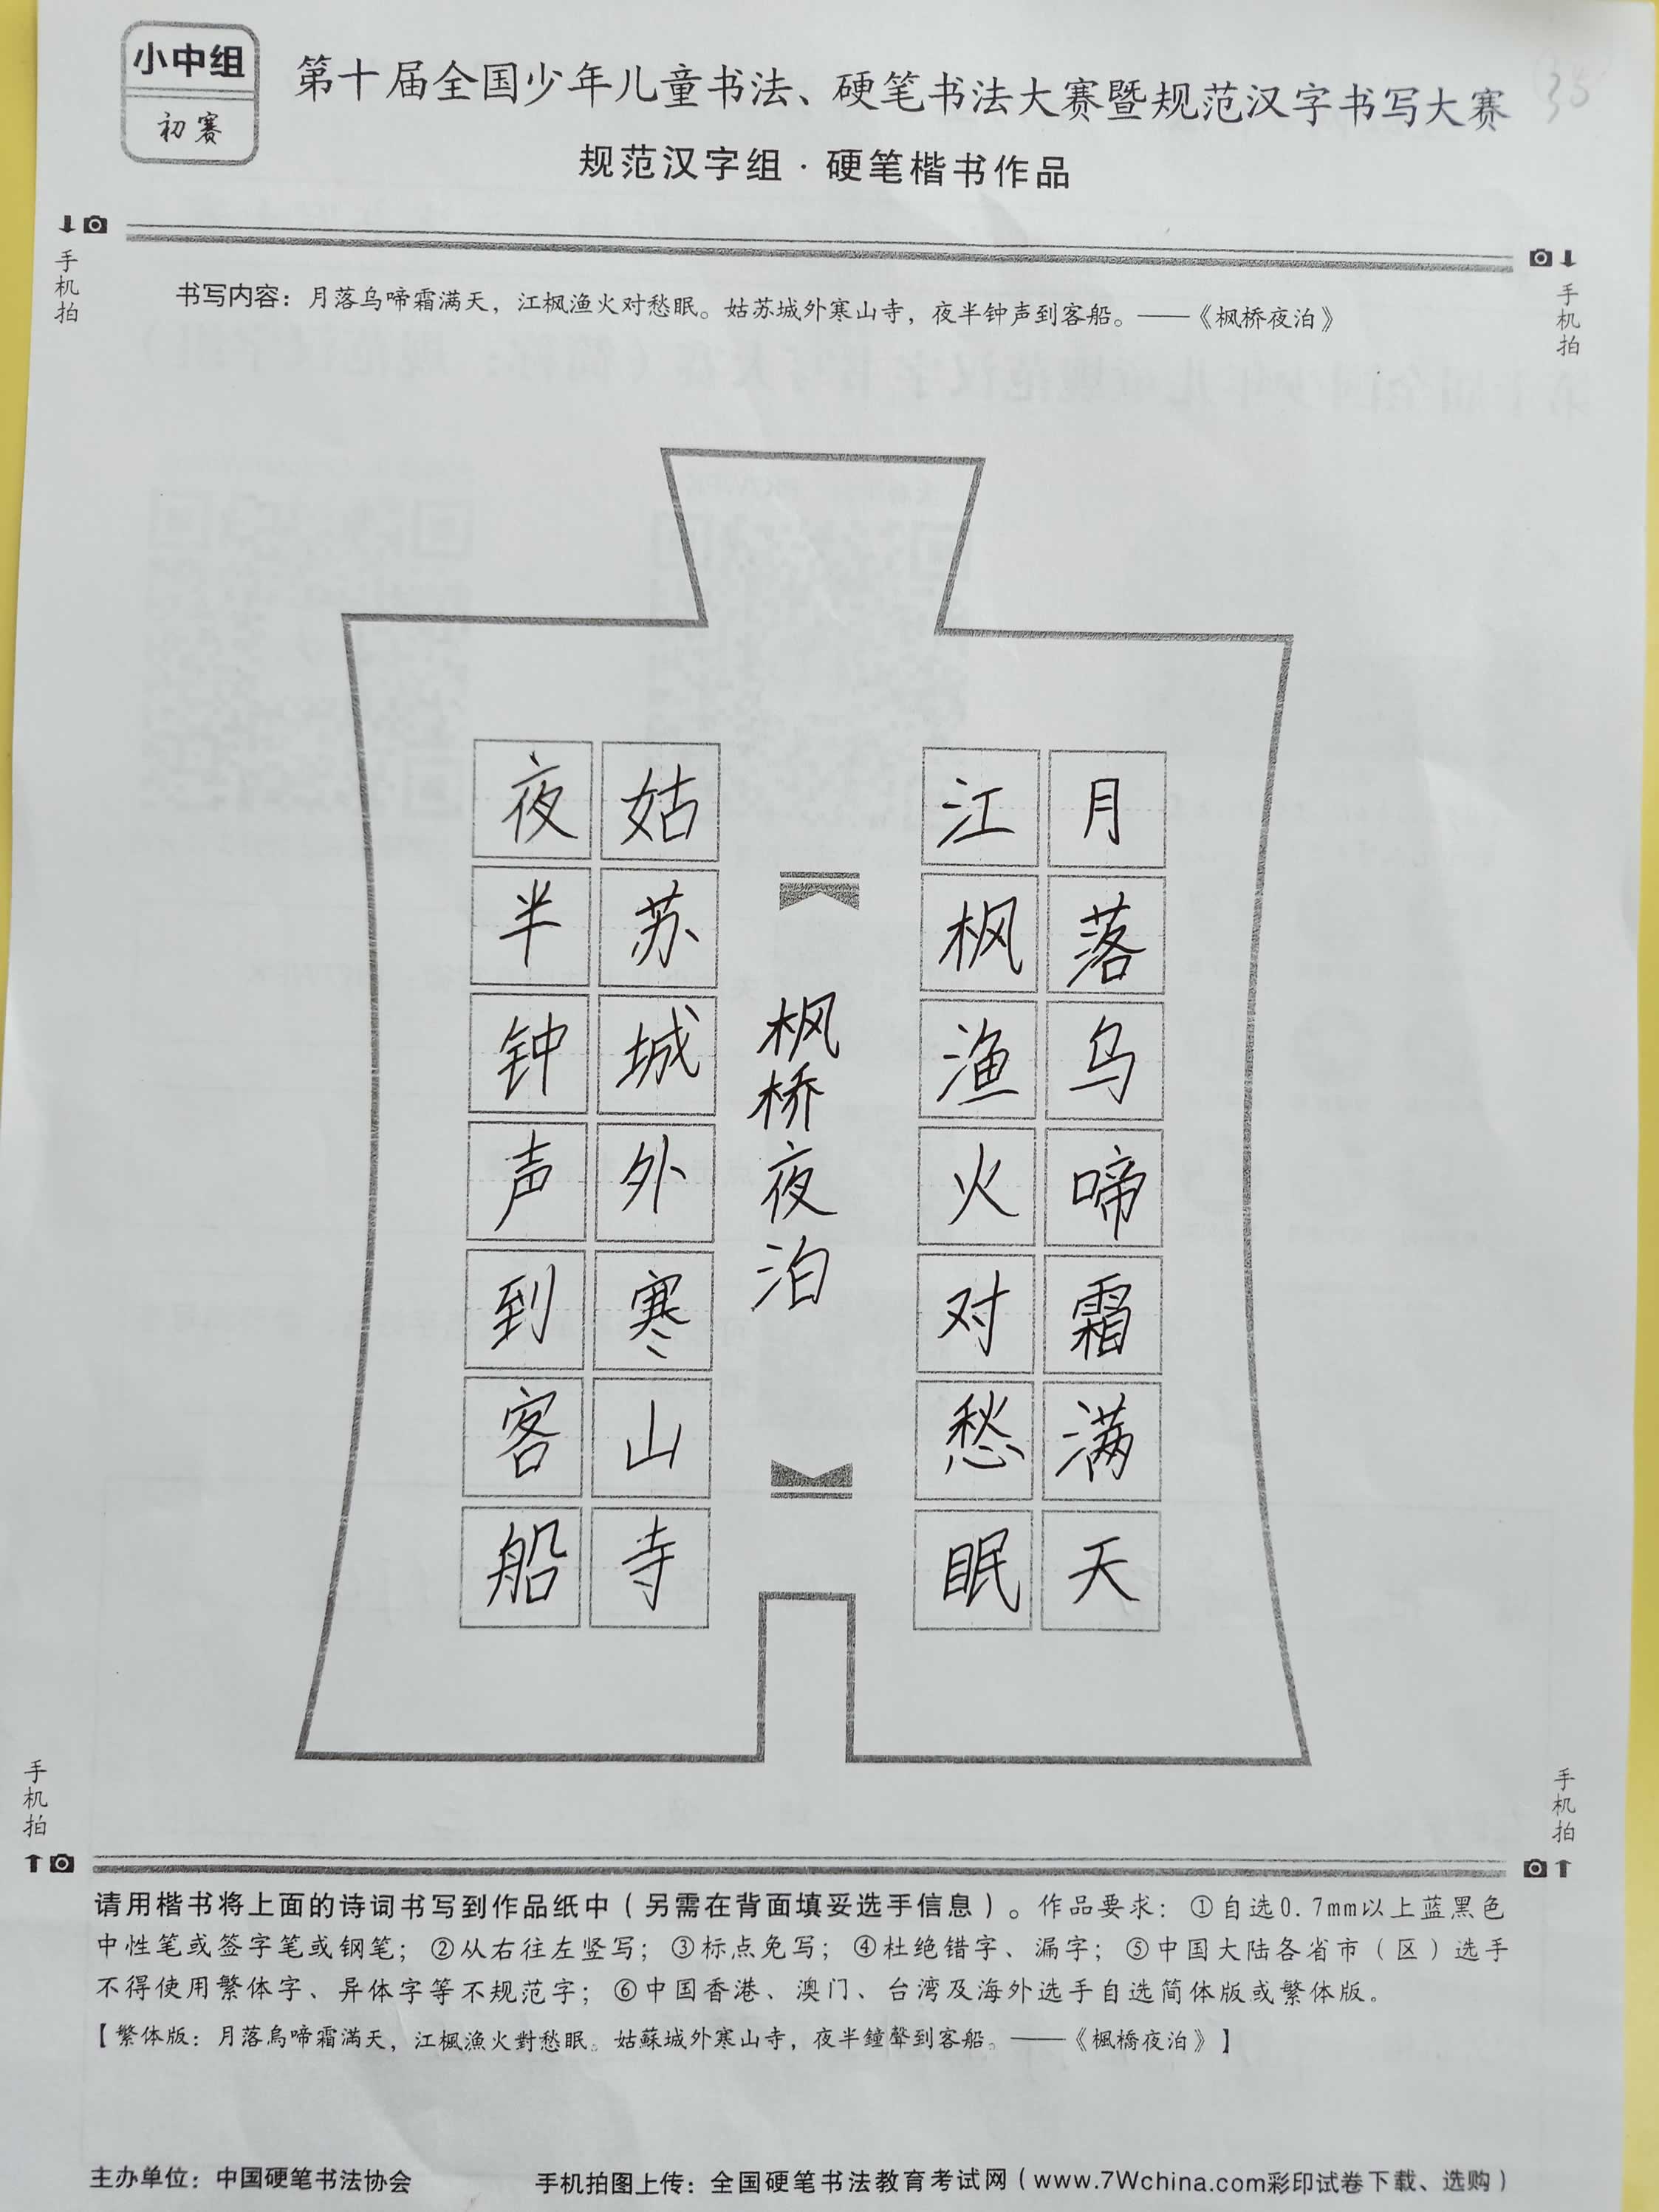 小中组
初赛
第十届全国少年儿童书法、硬笔书法大赛暨规范汉字书写大赛
35
规范汉字组·硬笔楷书作品
手机拍
手机拍
书写内容：月落乌啼霜满天，江枫渔火对愁眠。姑苏城外寒山寺，夜半钟声到客船。——《枫桥夜泊》
月落乌啼霜满天
江枫渔火对愁眠
枫桥夜泊
姑苏城外寒山寺
夜半钟声到客船
手机拍
手机拍
请用楷书将上面的诗词书写到作品纸中（另需在背面填妥选手信息）。作品要求：①自选0.7mm以上蓝黑色
中性笔或签字笔或钢笔；②从右往左竖写；③标点免写；④杜绝错字、漏字；⑤中国大陆各省市（区）选手
不得使用繁体字、异体字等不规范字；⑥中国香港、澳门、台湾及海外选手自选简体版或繁体版。
【繁体版：月落烏啼霜滿天，江楓漁火對愁眠。姑蘇城外寒山寺，夜半鐘聲到客船。——《楓橋夜泊》】
主办单位：中国硬笔书法协会
手机拍图上传：全国硬笔书法教育考试网（www.7Wchina.com彩印试卷下载、选购）